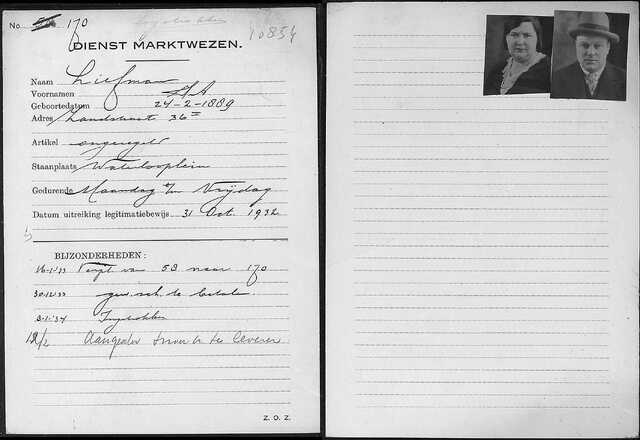 No 170
10854
DIENST MARKTWEZEN.
Naam Liefman
Voornamen
Geboortedatum 24-2-1889
Adres Zandstraat 36
Artikel ongeregeld
Staanplaats Waterlooplein
Gedurende Maandag t/m Vrijdag
Datum uitreiking legitimatiebewijs 31 Oct. 1932
BIJZONDERHEDEN:
16-1-'33 van 53 naar 170
30-12-33 te betalen
3-1-'34 Ingetrokken
12/2 in te leveren
Z. O. Z.